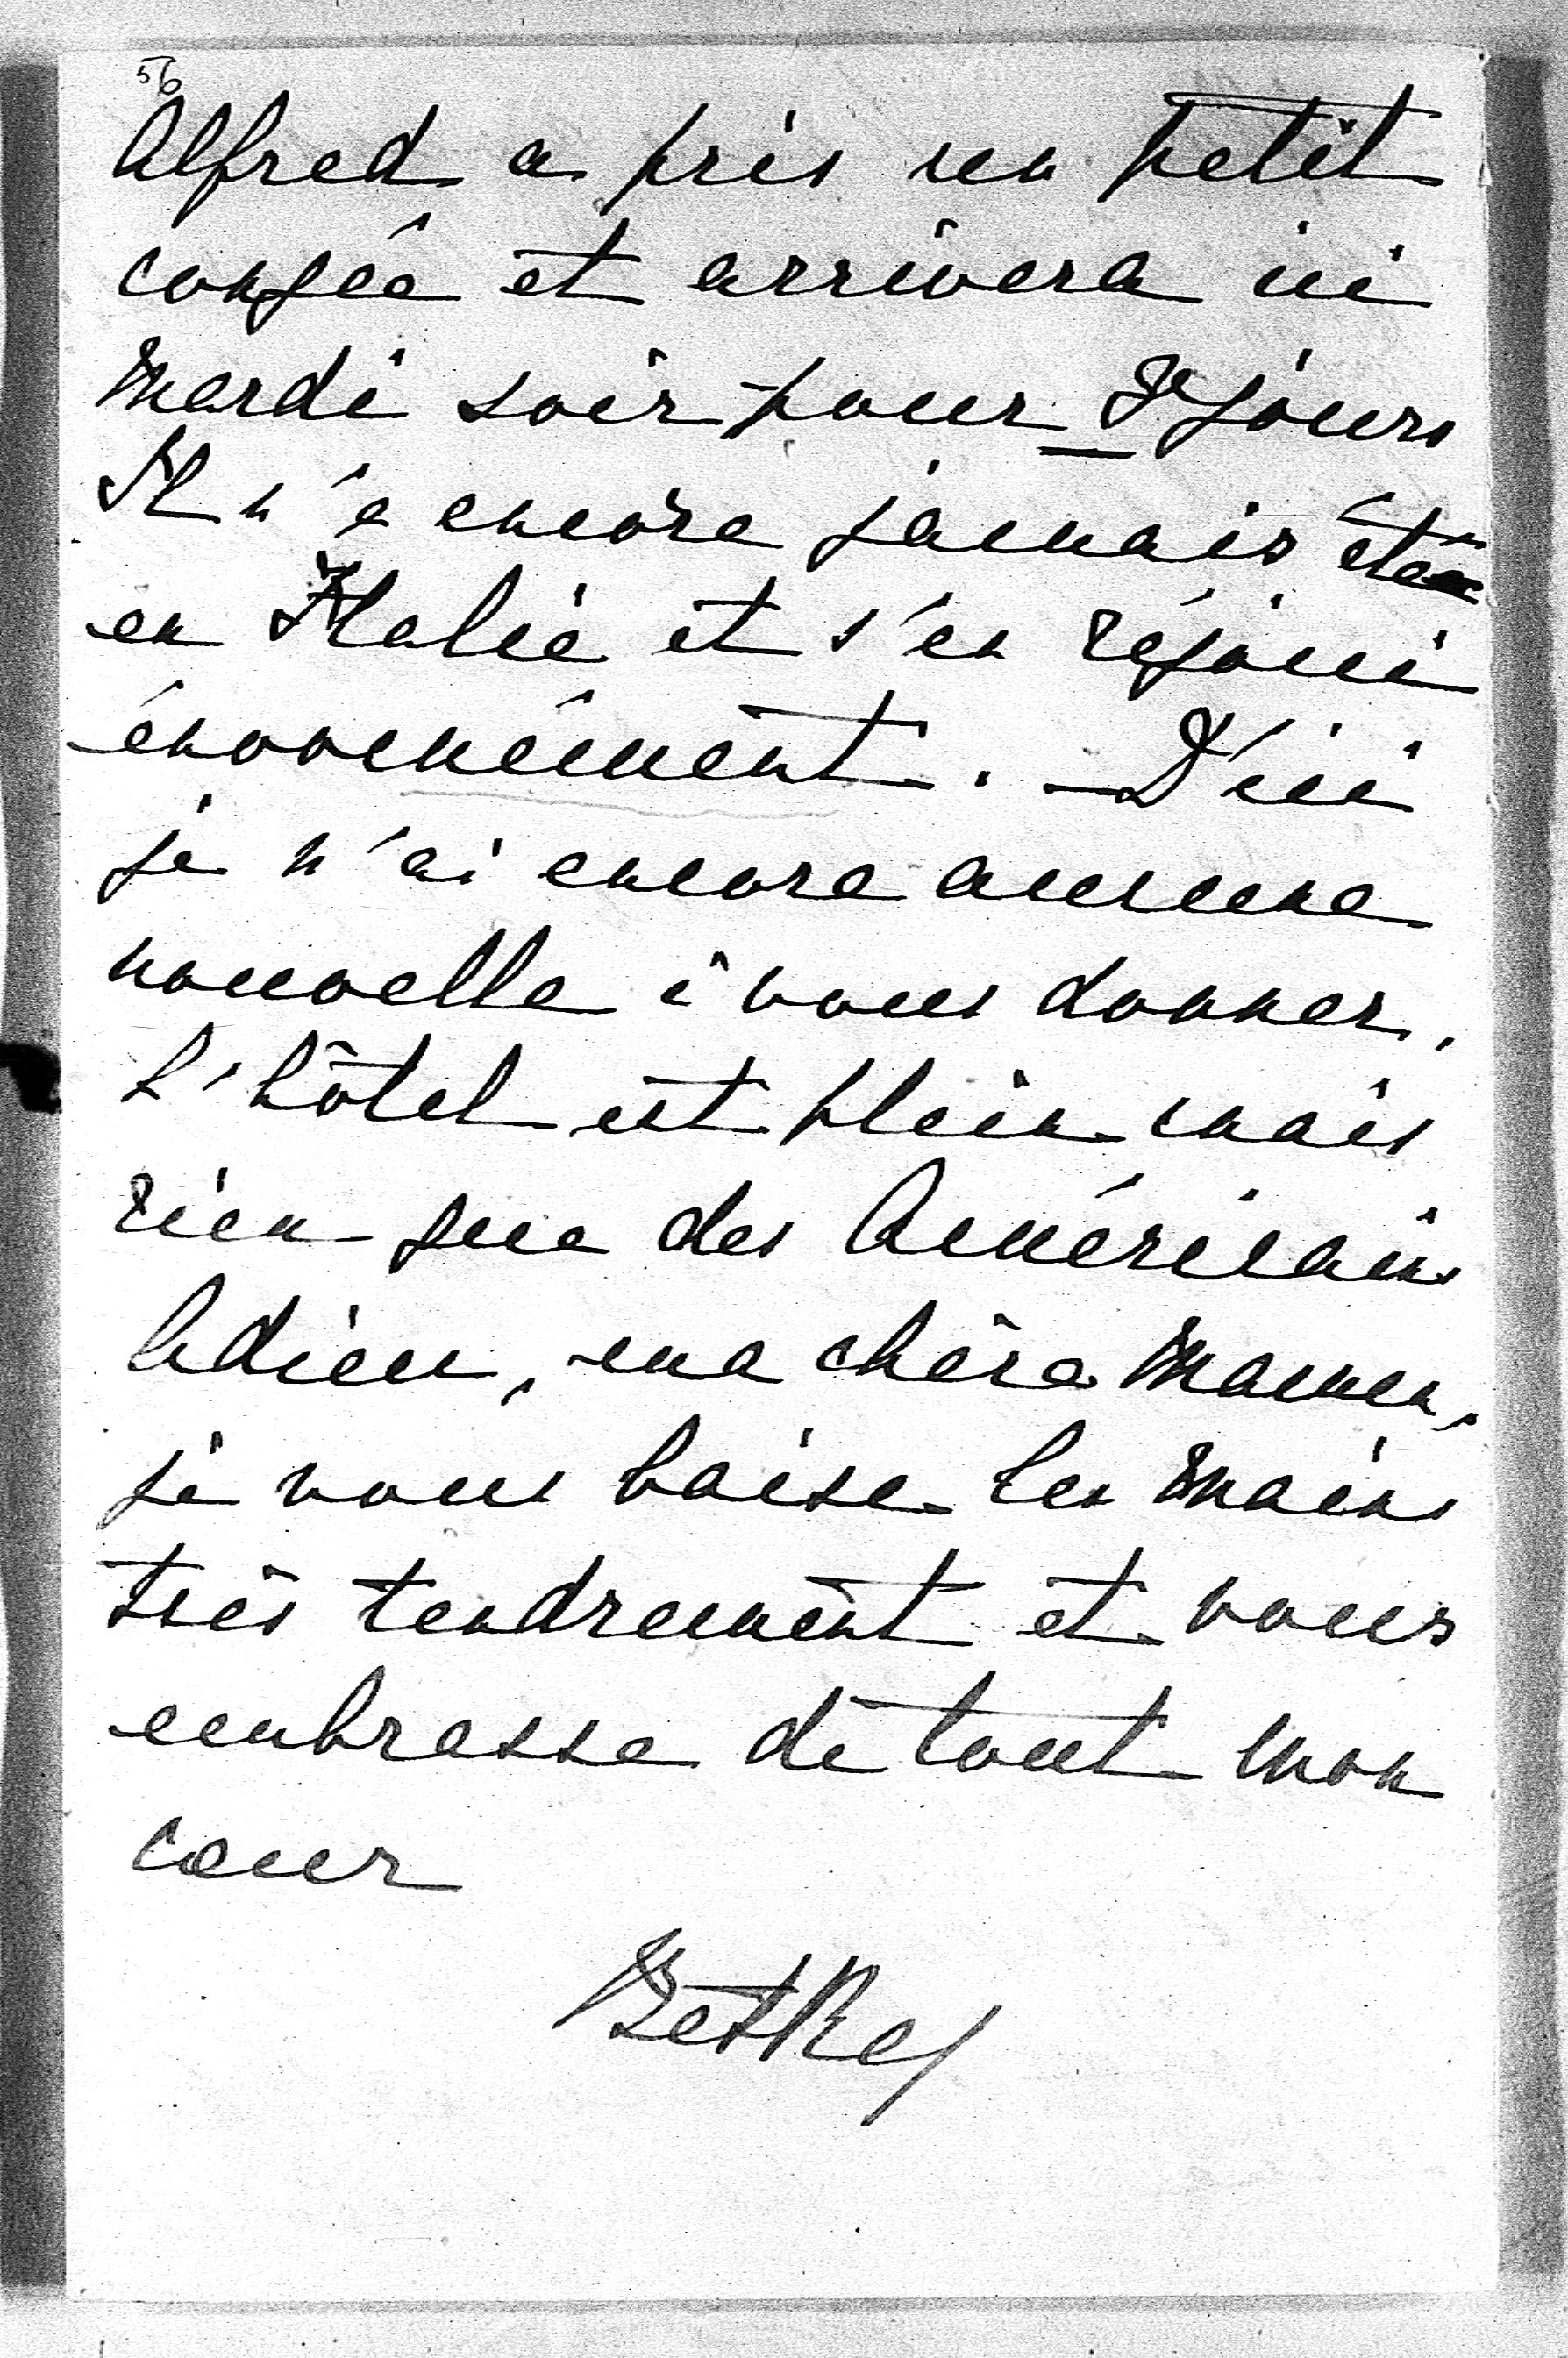 56
Alfred a pris un petit
congée et arrivera ici
Mardi soir pour 8 jours
Il n'a encore jamais été
en Italie et s'en réjoui
énormément. – D'ici
je n'ai encore aucune
nouvelle à vous donner.
L'hôtel est plein mais
rien que des Américains
Adieu, ma chère Maman,
je vous baise les mains
très tendrement et vous
embrasse de tout mon
cœur